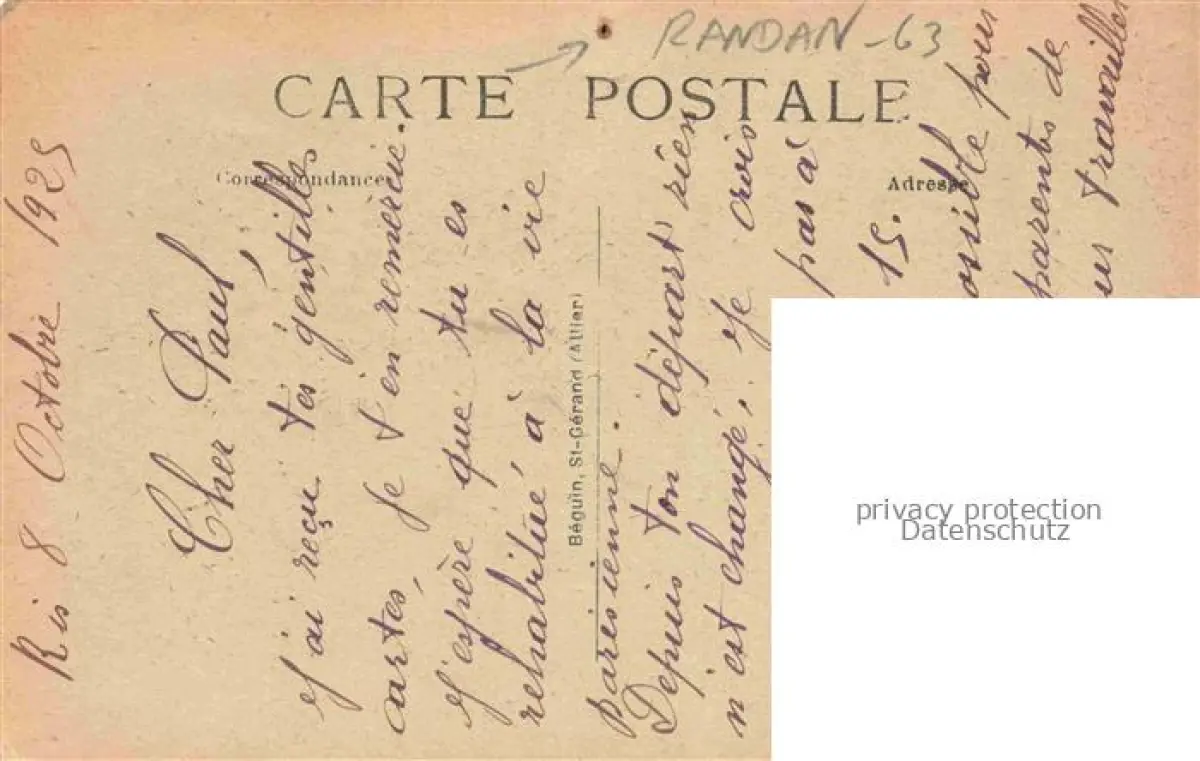 RANDAN - 63
CARTE POSTALE
Correspondance
Adresse
Béguin, St-Gérand (Allier)
Ris 8 Octobre 1925
Cher Paul,
J'ai reçu tes gentilles
cartes, je t'en remèrcie.
J'espère que tu es
rehabitué à la vie
parisienne.
Depuis ton départ rien
n'est changé, je crois
pas à
15.
possible pour
parents de
travailler
privacy protection
Datenschutz